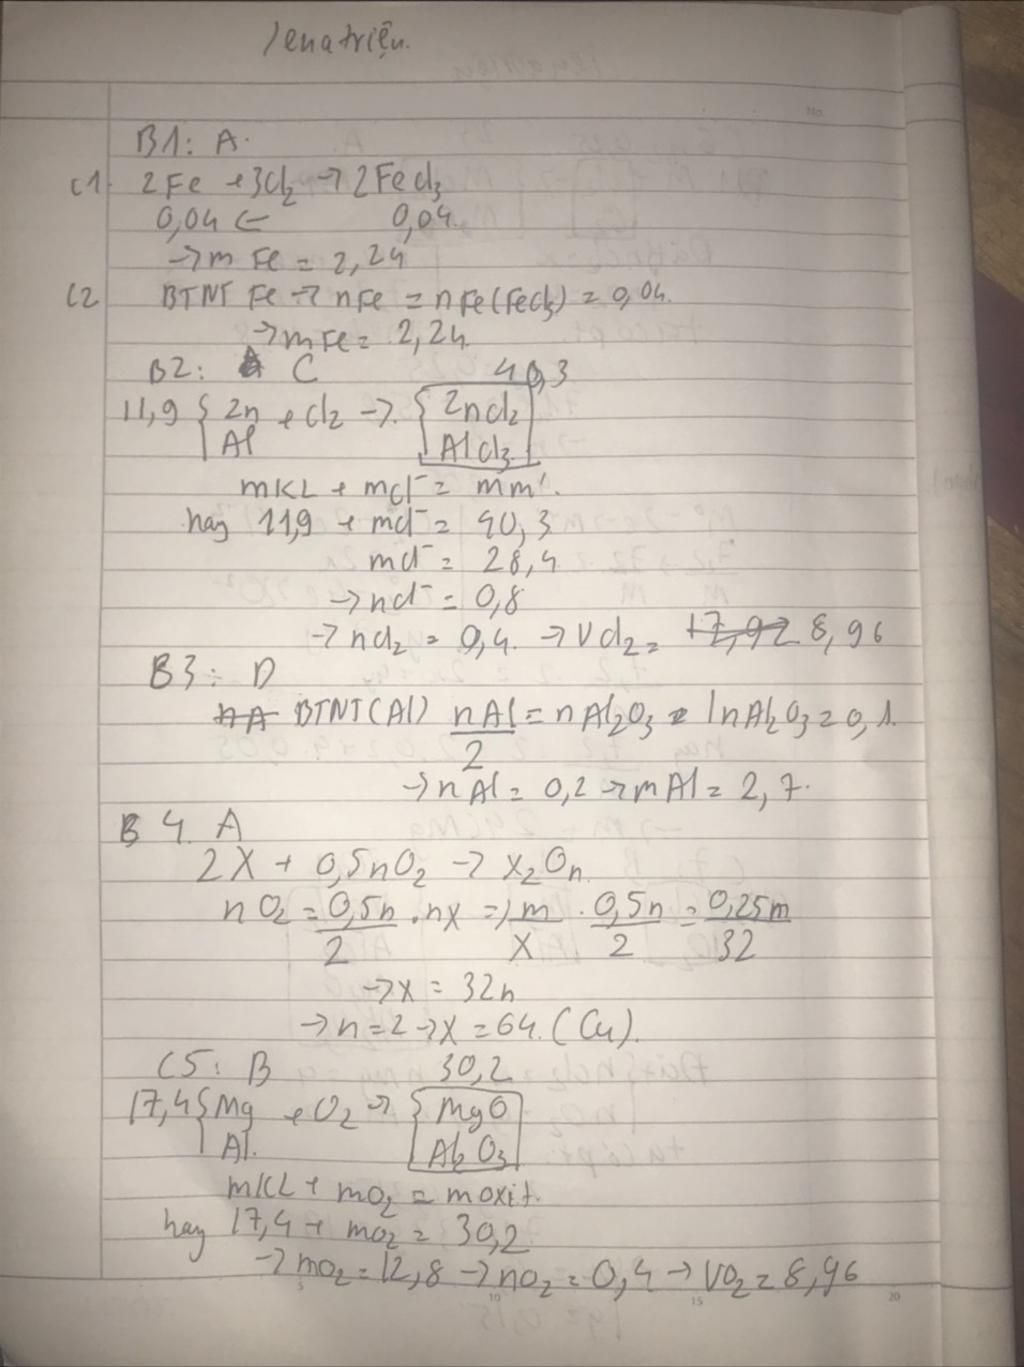 lenatriện.
No.
B1: A.
C1 2Fe + 3Cl2 → 2FeCl3
0,04 ← 0,04
→ mFe = 2,24
C2 BTNT Fe → nFe = nFe(FeCl3) = 0,04.
→ mFe = 2,24.
B2: C 40,3
11,9 { Zn + Cl2 → { ZnCl2
Al AlCl3
mKL + mCl⁻ = mm'.
hay 11,9 + mCl⁻ = 40,3
mCl⁻ = 28,4
→ nCl⁻ = 0,8
→ nCl2 = 0,4. → VCl2 = 17,92 8,96
B3: D
nA BTNT(Al) nAl/2 = nAl2O3 = 1nAl2O3 = 0,1.
→ nAl = 0,2 → mAl = 2,7.
B4. A
2X + 0,5nO2 → X2On
nO2 = 0,5n/2 . nX => m/X . 0,5n/2 = 0,25m/32
→ X = 32n
→ n = 2 → X = 64. (Cu).
C5: B 30,2
17,4 { Mg + O2 → { MgO
Al. Al2O3
mKL + mO2 = moxit.
hay 17,4 + mO2 = 30,2
→ mO2 = 12,8 → nO2 = 0,4 → VO2 = 8,96
5 10 15 20